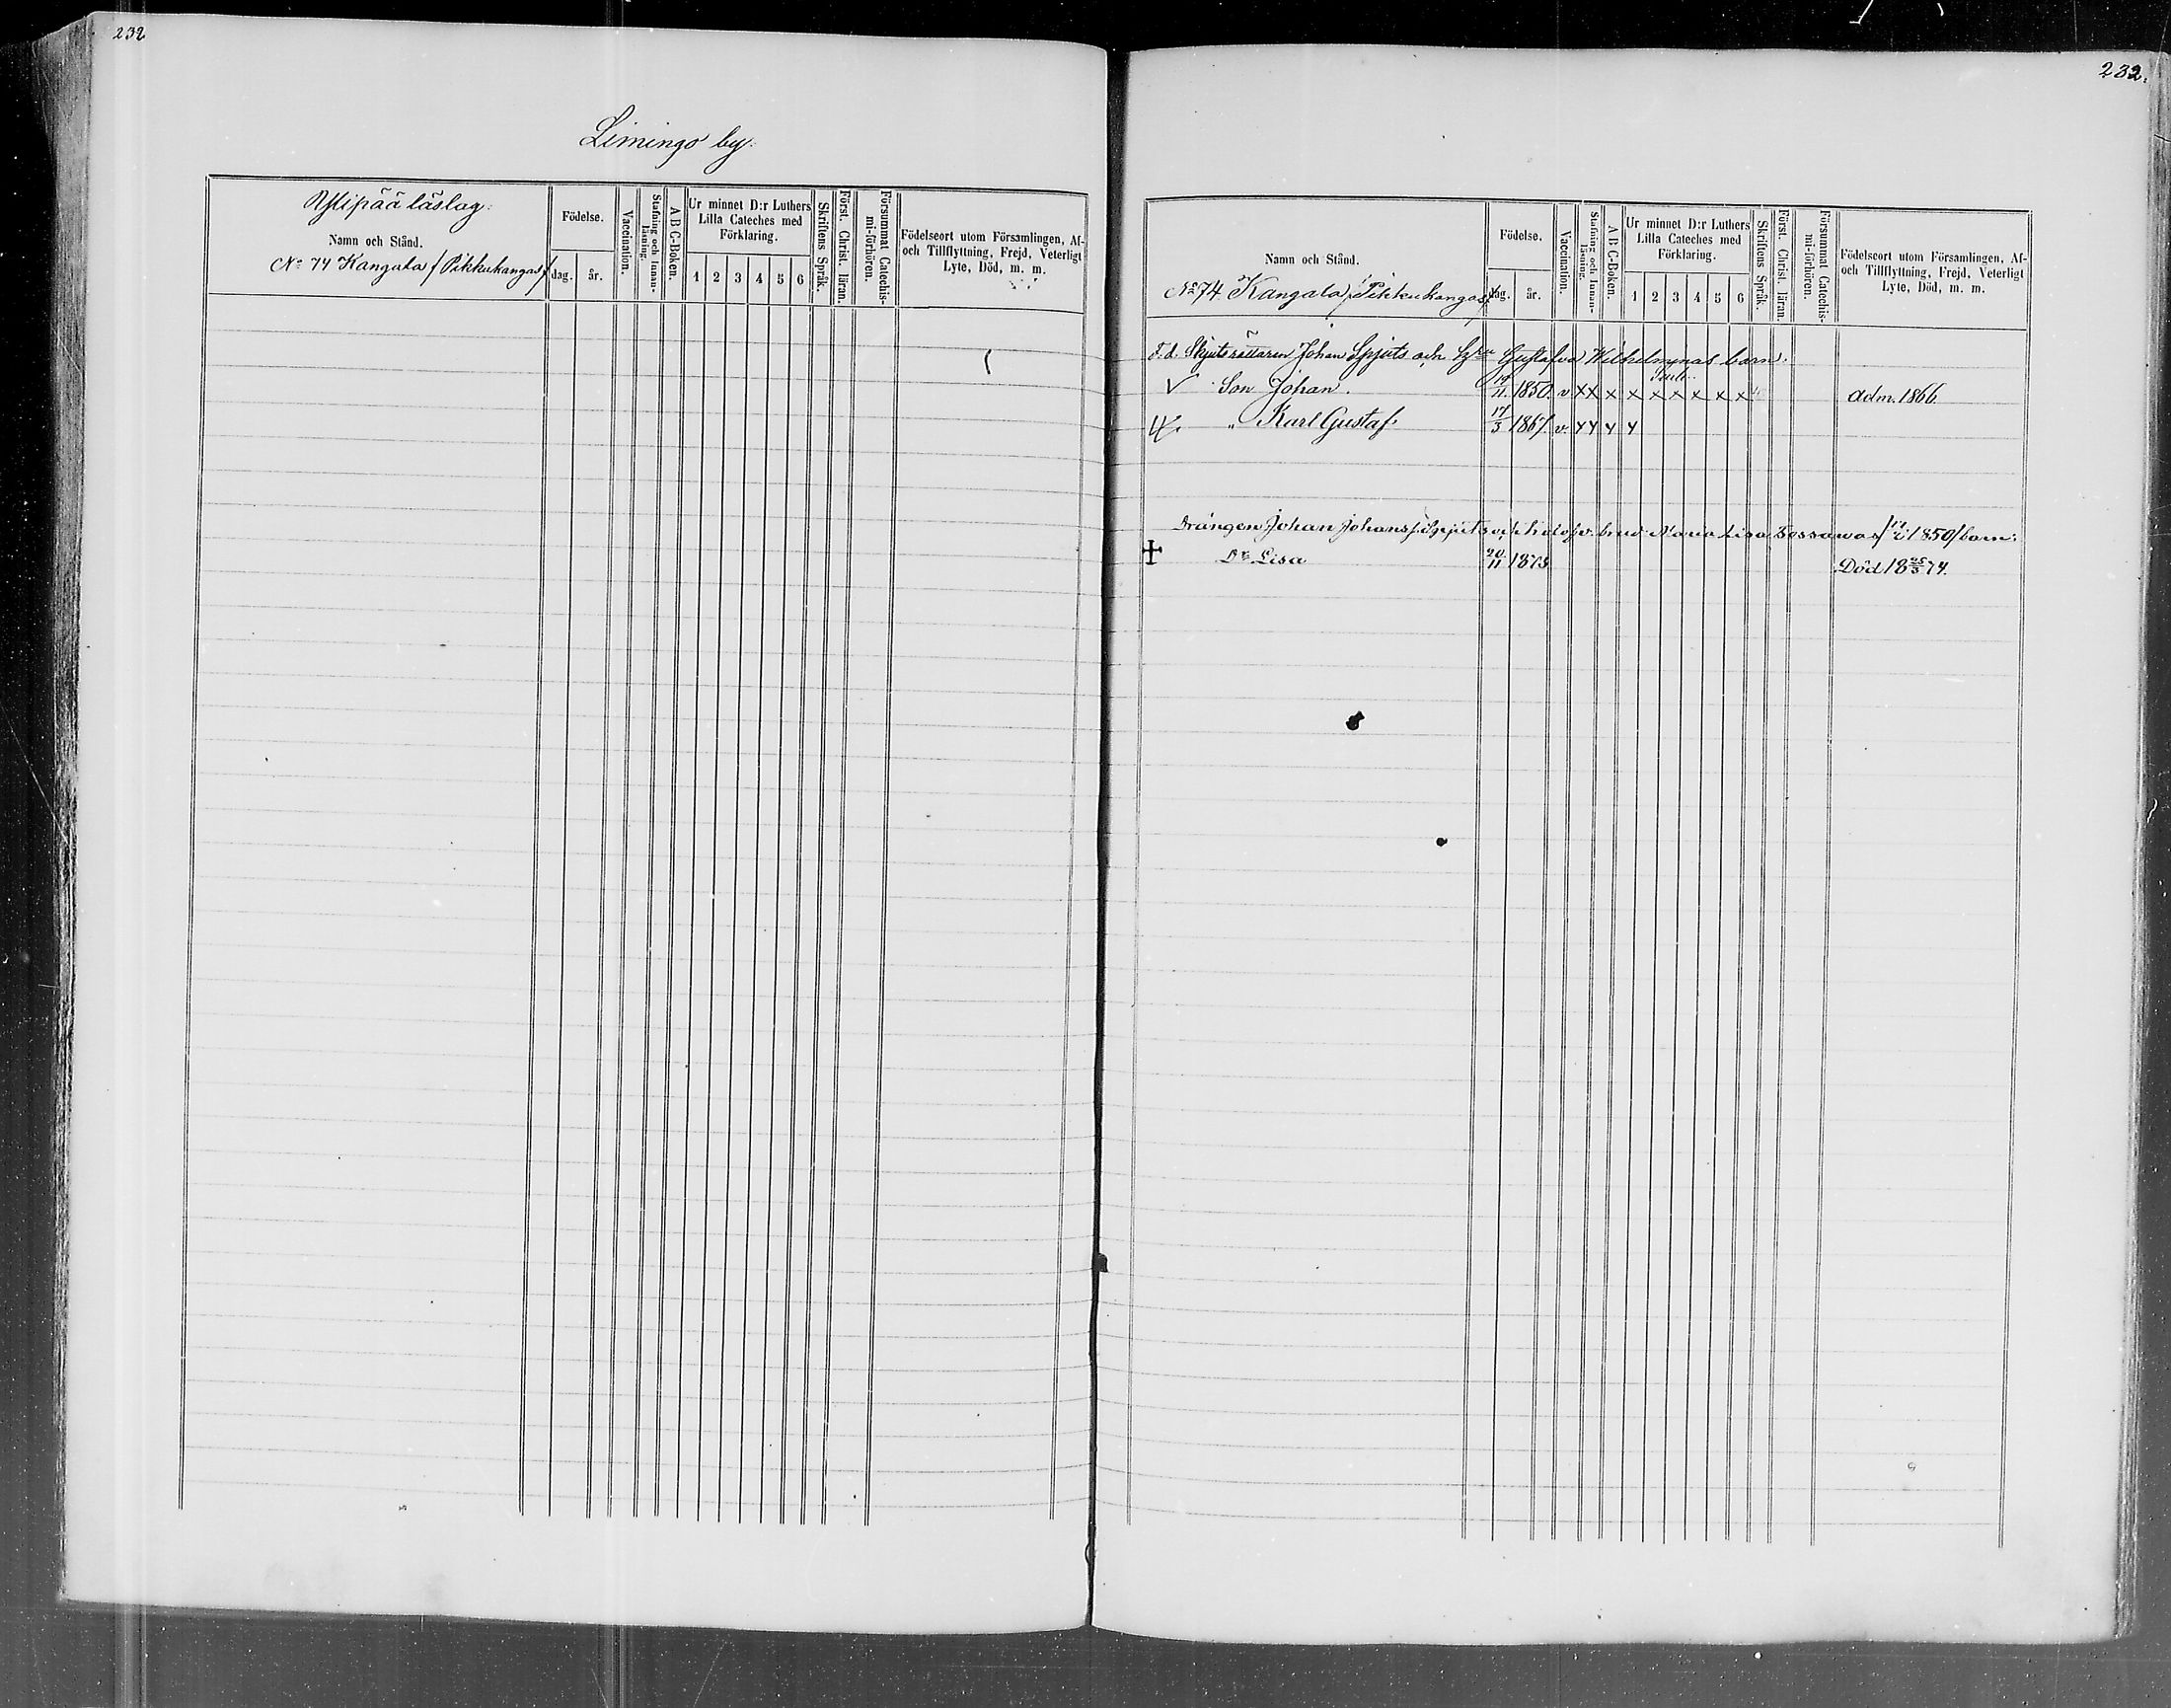 232
Limingo by.
Ylipää läslag.
Namn och Stånd.
No 74 Kangala /Pikkukangas/
Födelse.
dag.
år.
Vaccination.
Stafning och Innan-
läsning.
A B C-Boken.
Ur minnet D:r Luthers
Lilla Cateches med
Förklaring.
1 2 3 4 5 6
Skriftens Språk.
Först. Christ. läran.
Försummat Catechis-
mi-förhören.
Födelseort utom Församlingen, Af-
och Tillflyttning, Frejd, Veterligt
Lyte, Död, m. m.
232.
Namn och Stånd.
No 74 Kangala /Pikkukangas/
Födelse.
dag.
år.
Vaccination.
Stafning och Innan-
läsning.
A B C-Boken.
Ur minnet D:r Luthers
Lilla Cateches med
Förklaring.
1 2 3 4 5 6
Skriftens Språk.
Först. Christ. läran.
Försummat Catechis-
mi-förhören.
Födelseort utom Församlingen, Af-
och Tillflyttning, Frejd, Veterligt
Lyte, Död, m. m.
F.d. Skjutsrättaren Johan Spjuts och Gustafva Wilhelminas barn.
V Son Johan. 1850. v x x x x x x x x x adm. 1866.
" Karl Gustaf 17/3 1867. v.
Drängen Johan Johanss. Spjuts och Maria Lisa 1850/ barn.
Dr Lisa 20/11 1873 Död 18 25/3 74.